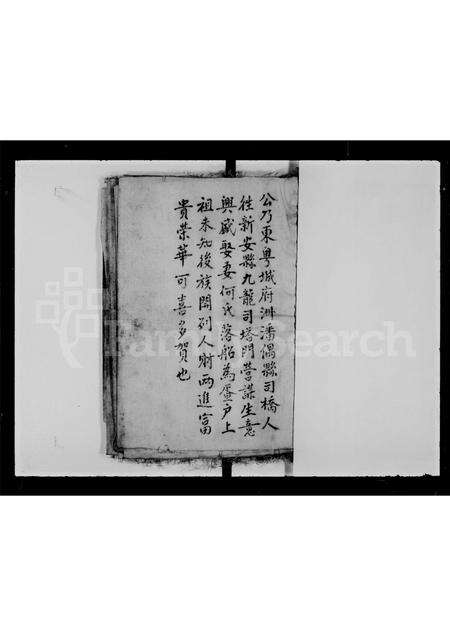 公乃東粵城府洲潘偶縣司橋人
往新安縣九龍司塔門營謀生意
興盛娶妻何氏落船為疍户上
祖未知後族開列人財兩進富
貴榮華可喜多賀也
FamilySearch